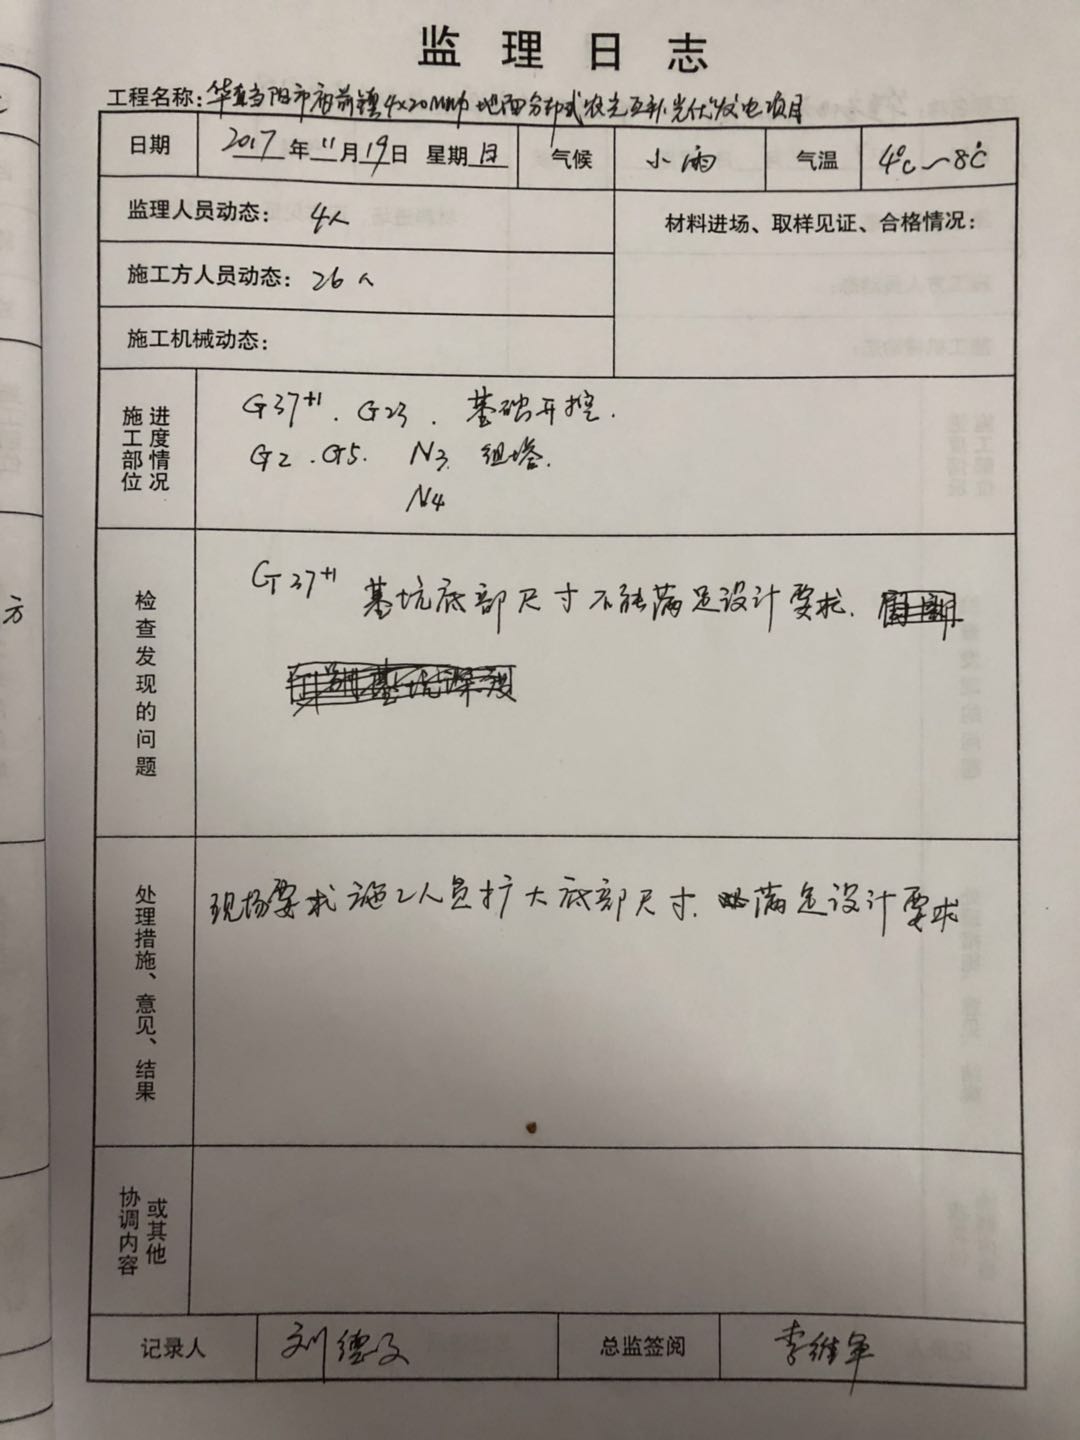 监理日志
工程名称:华直当阳市庙前镇4x20MWp地面分布式农光互补光伏发电项目
日期 2017年11月19日 星期日 气候 小雨 气温 4℃~8℃
监理人员动态: 4人
材料进场、取样见证、合格情况:
施工方人员动态: 26人
施工机械动态:
施工部位进度情况
G37+1. G23. 基础开挖.
G2. G5. N3. 组塔.
N4
检查发现的问题
G37+1 基坑底部尺寸不能满足设计要求.
处理措施、意见、结果
现场要求施工人员扩大底部尺寸. 满足设计要求
协调内容或其他
记录人 刘德文 总监签阅 李维军
方